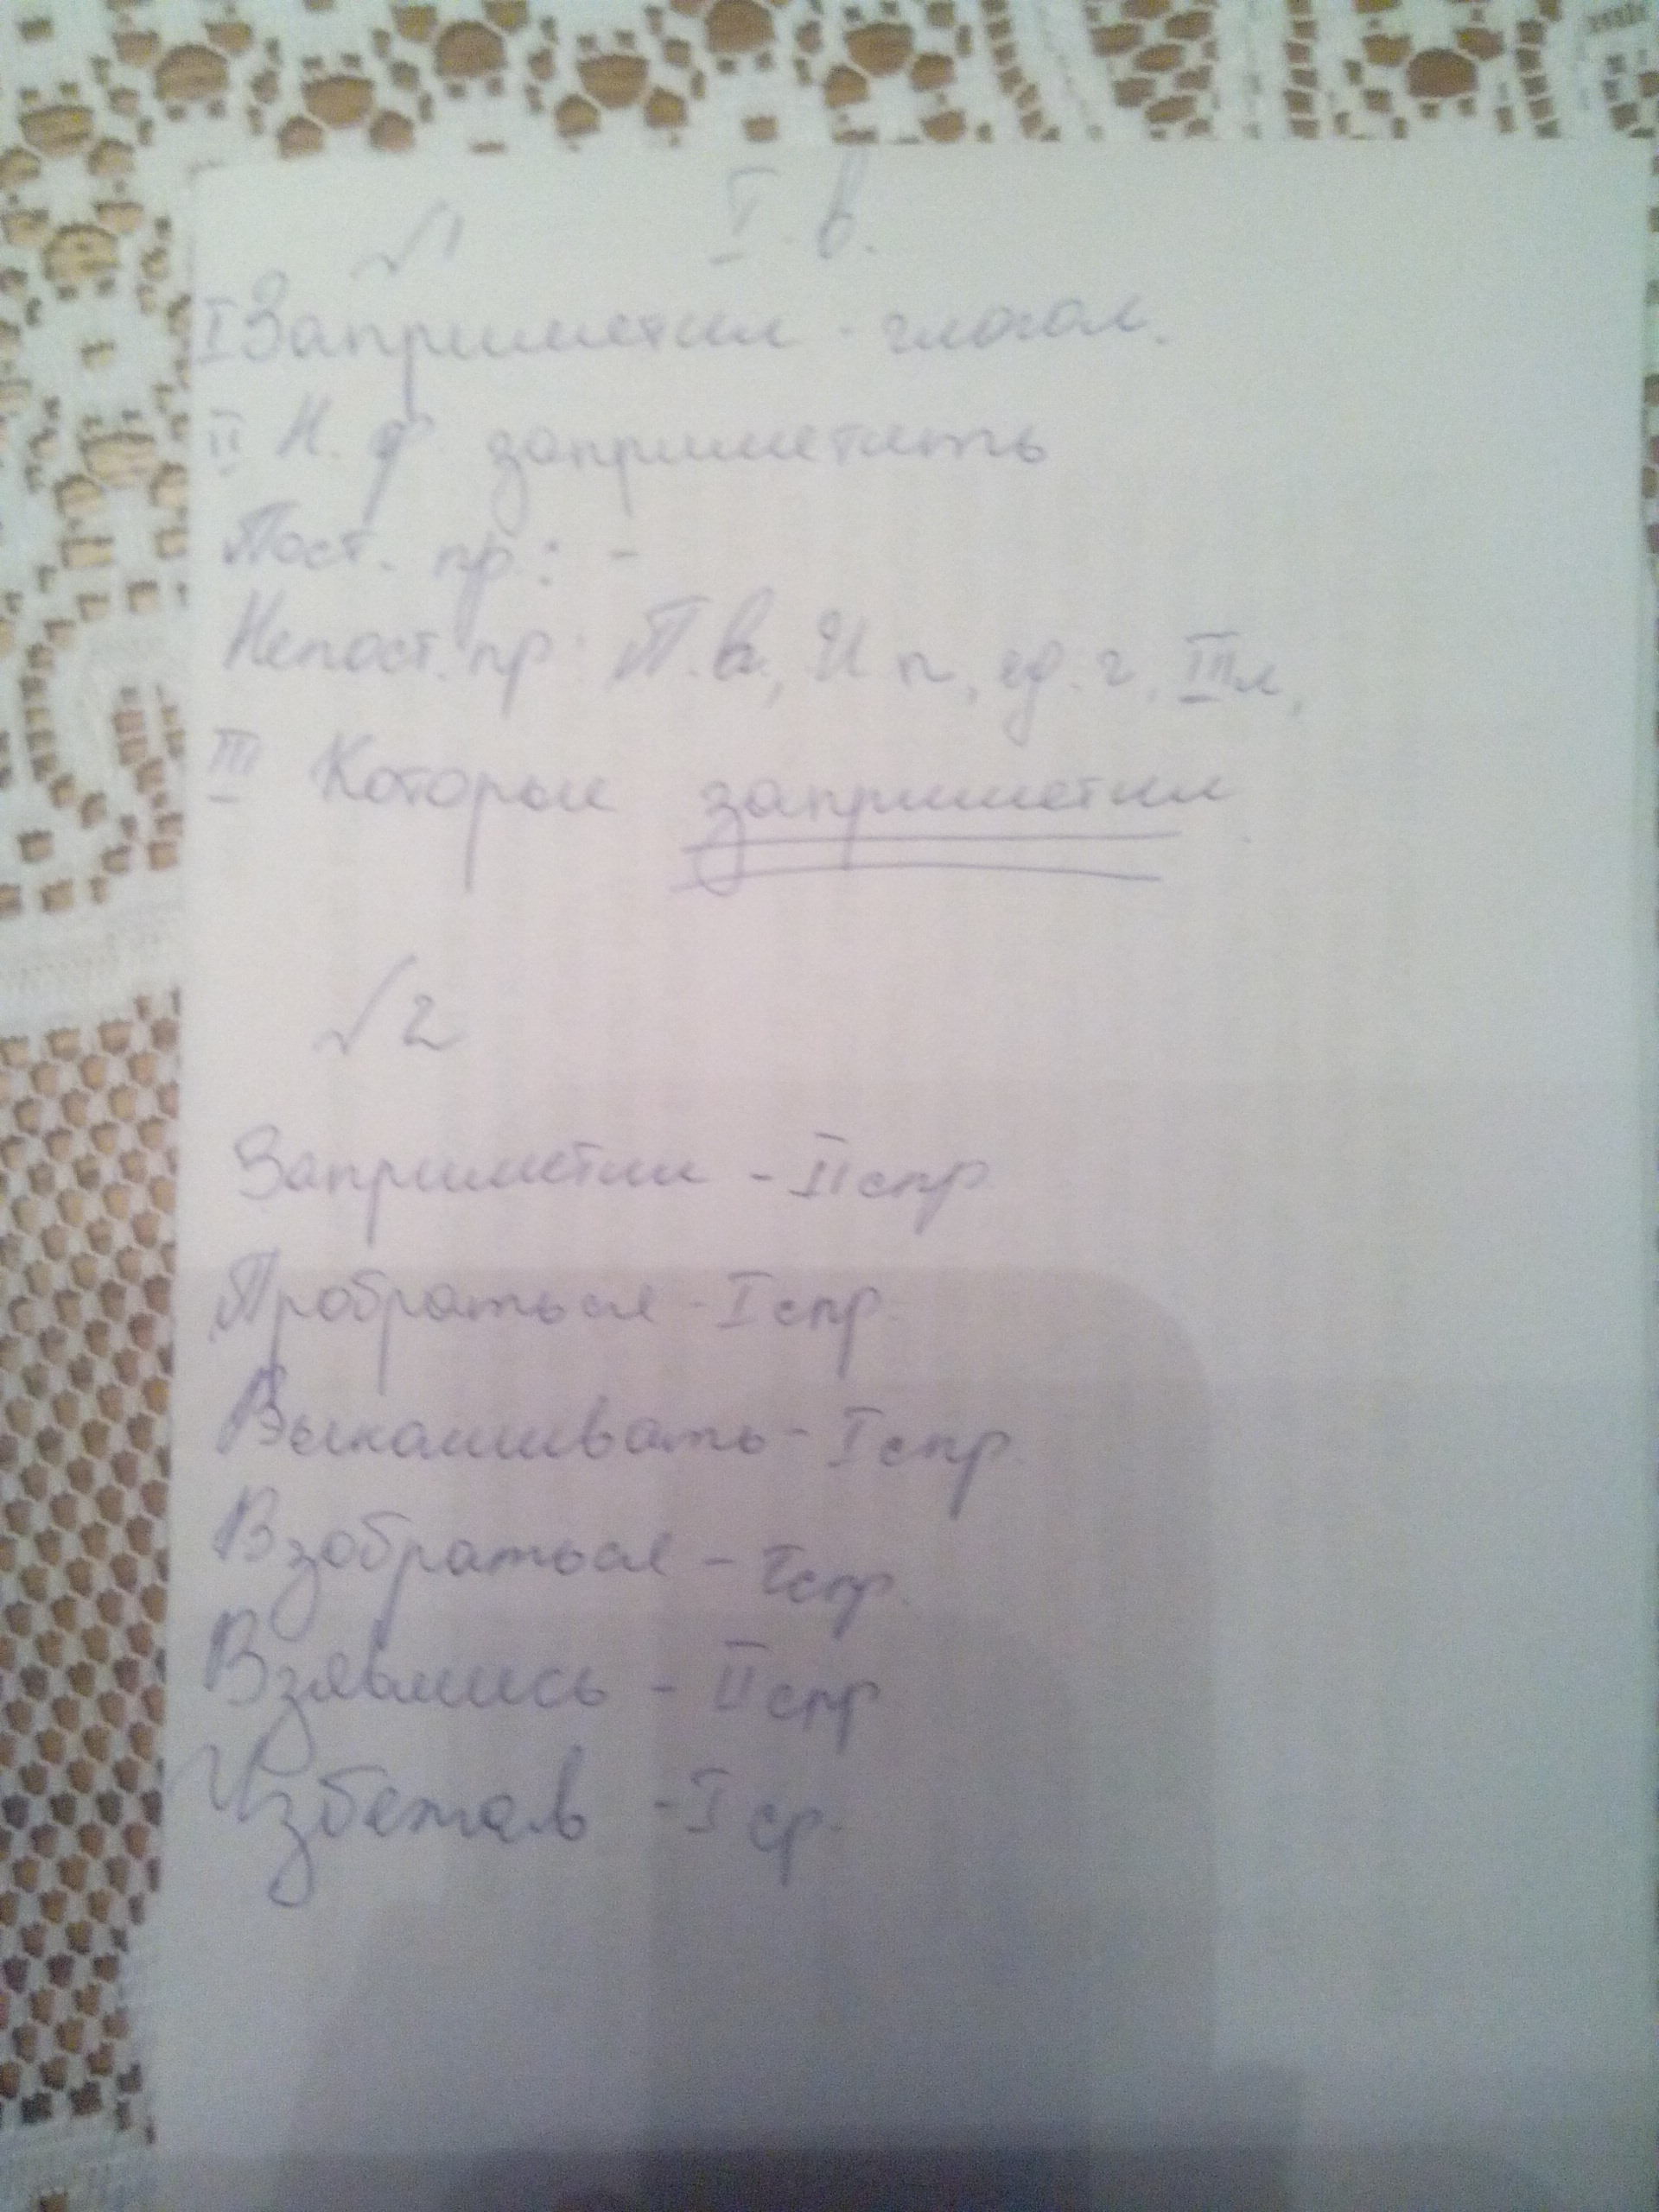 √1 I. в.
I Заприметил - глагол.
II Н. ф. заприметить
Пост. пр.: -
Непост. пр: П.в., И п, ед. ч, III л,
III Которые заприметил.
√2
Заприметил - II спр
Пробраться - I спр.
Выкашивать - I спр.
Взобраться - I спр.
Взявшись - II спр
Избежав - I ср.